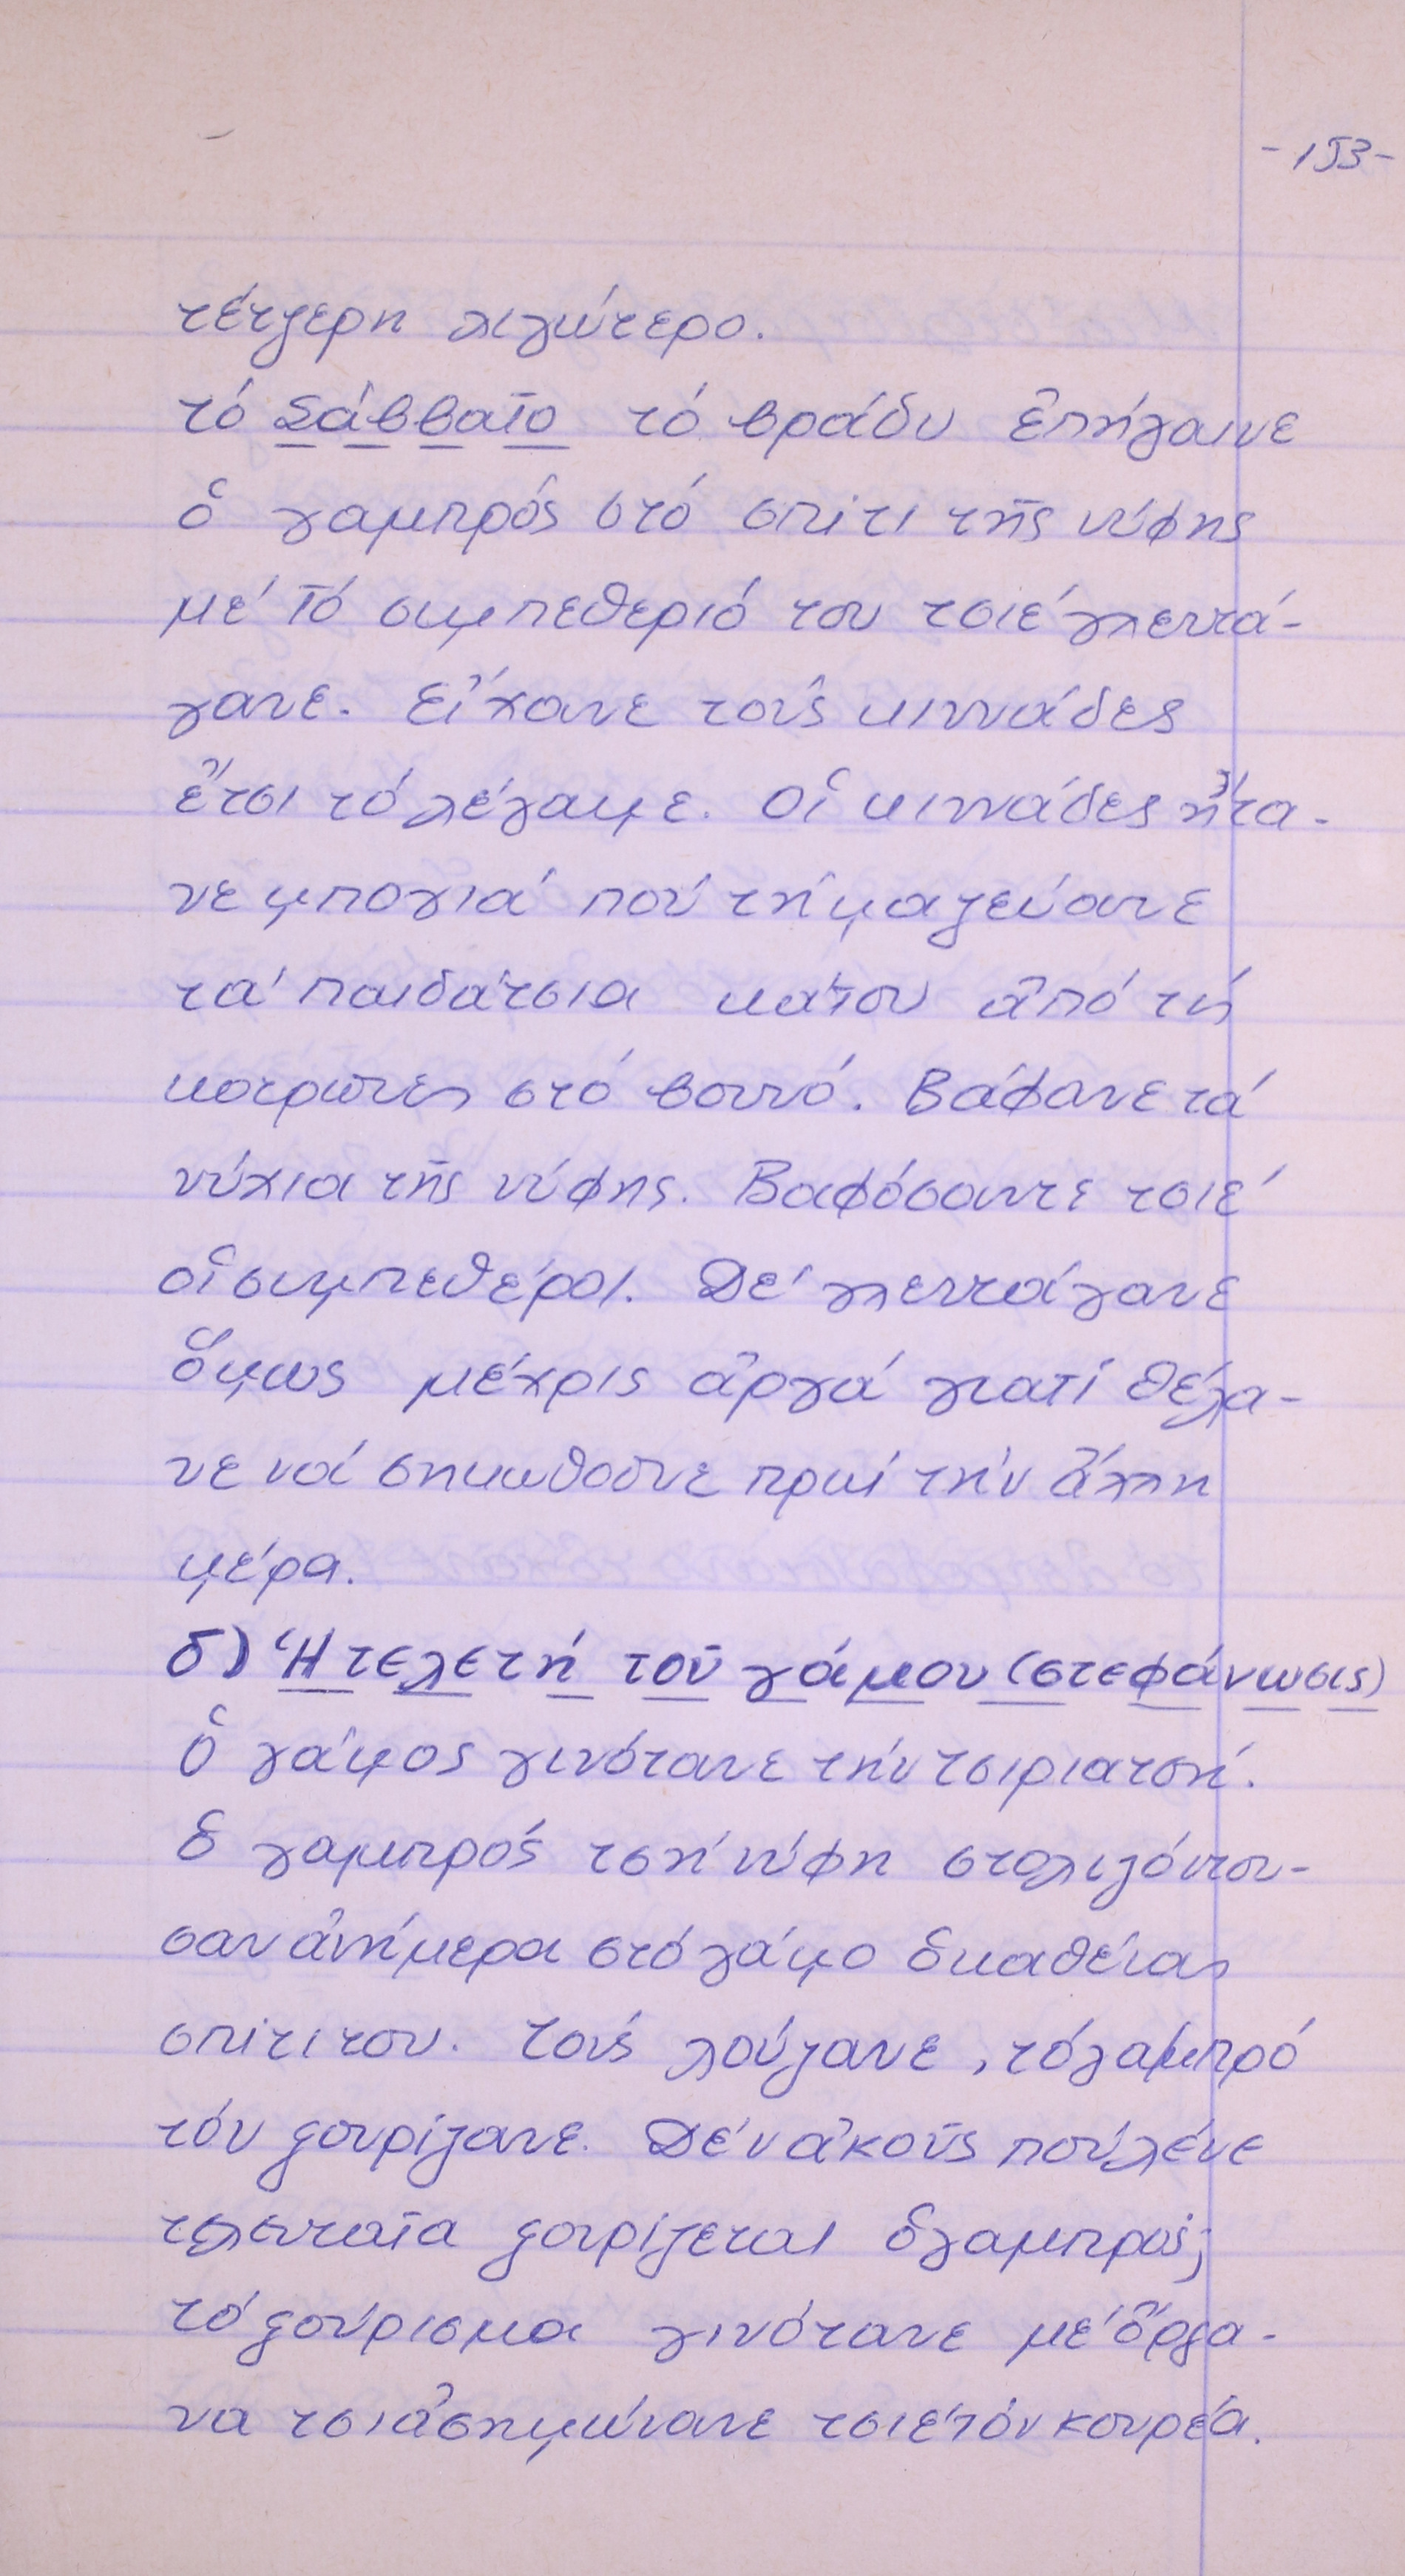 -153-
τέτζερη λιγώτερο.
τό Σάββατο τό βράδυ ἐπήγαινε
ὁ γαμπρός στό σπίτι τῆς νύφης
μέ τό συμπεθεριό του τσιέ γλεντά-
γανε. Εἴχανε τούς κιννάδες
ἔτσι τό λέγαμε. Οἱ κιννάδες ἤτα-
νε μπογιά πού τή μαζεύανε
τά παιδάτσια κάτου ἀπό τή
κοτρῶνες στό βουνό. Βάφανε τά
νύχια τῆς νύφης. Βαφόσαντε τσιέ
οἱ συμπεθέροι. Δέ γλεντάγανε
ὅμως μέχρις ἀργά γιατί θέλα-
νε νά σηκωθοῦνε πρωί τήν ἄλλη
μέρα.
δ) Ἡ τελετή τοῦ γάμου (στεφάνωσις)
Ὁ γάμος γινότανε τήν τσιριατσή.
ὁ γαμπρός τσή νύφη στολιζόντου-
σαν ἀνήμερα στό γάμο ὁ καθείας
σπίτι του. Τούς λούζανε, τό γαμπρό
τόν ξουρίζανε. Δέν ἀκοῦς πού λένε
τελευταῖα ξουρίζεται ὁ γαμπρός;
τό ξούρισμα γινότανε μέ ὄργα-
να τσι ἀσημώνανε τσιέ τόν κουρέα.